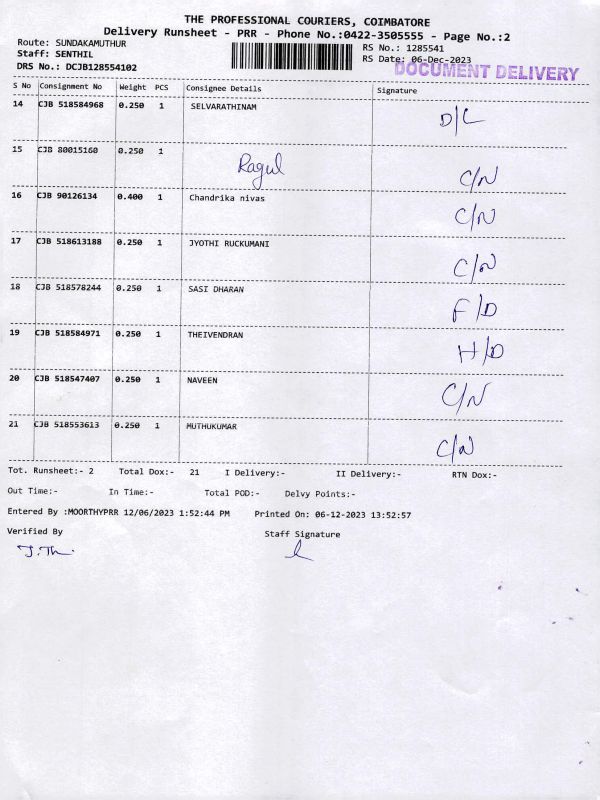 THE PROFESSIONAL COURIERS, COIMBATORE
Delivery Runsheet - PRR - Phone No.:0422-3505555 - Page No.:2
Route: SUNDAKAMUTHUR RS No.: 1285541
Staff: SENTHIL RS Date: 06-Dec-2023
DRS No.: DCJB128554102 DOCUMENT DELIVERY
S No Consignment No Weight PCS Consignee Details Signature
14 CJB 518584968 0.250 1 SELVARATHINAM D/L
15 CJB 80015160 0.250 1 Ragul C/N
16 CJB 90126134 0.400 1 Chandrika nivas C/N
17 CJB 518613188 0.250 1 JYOTHI RUCKUMANI C/N
18 CJB 518578244 0.250 1 SASI DHARAN F/D
19 CJB 518584971 0.250 1 THEIVENDRAN H/D
20 CJB 518547407 0.250 1 NAVEEN C/N
21 CJB 518553613 0.250 1 MUTHUKUMAR C/N
Tot. Runsheet:- 2 Total Dox:- 21 I Delivery:- II Delivery:- RTN Dox:-
Out Time:- In Time:- Total POD:- Delvy Points:-
Entered By :MOORTHYPRR 12/06/2023 1:52:44 PM Printed On: 06-12-2023 13:52:57
Verified By Staff Signature